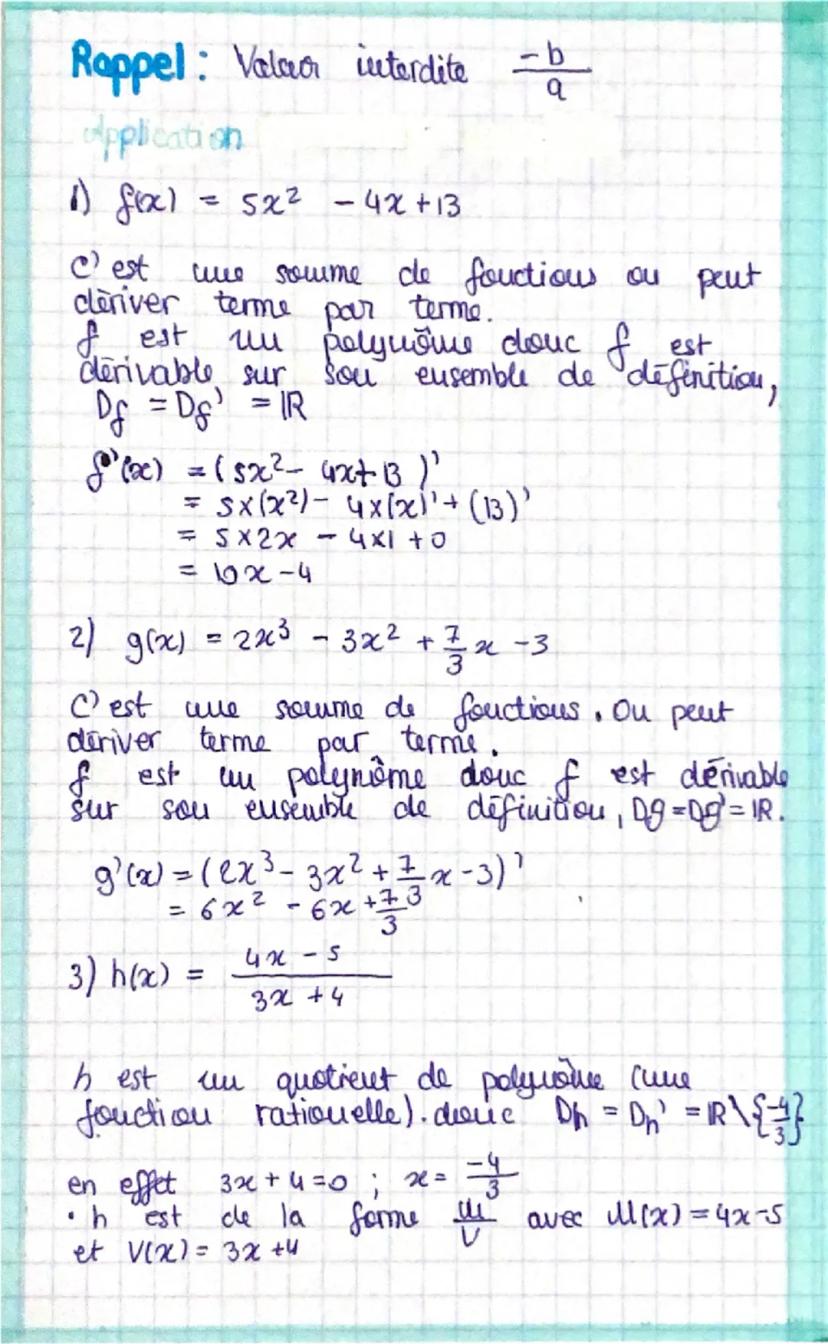 Rappel : Valeur interdite -b/a
Application
1) f(x) = 5x² - 4x + 13
C'est une somme de fonctions on peut
dériver terme par terme.
f est un polynôme donc f est
dérivable sur son ensemble de définition,
Df = Df' = ℝ
f'(x) = (5x² - 4x + 13)'
= 5×(x²) - 4×(x)' + (13)'
= 5×2x - 4×1 + 0
= 10x - 4
2) g(x) = 2x³ - 3x² + 7/3 x - 3
C'est une somme de fonctions. On peut
dériver terme par terme.
f est un polynôme donc f est dérivable
sur son ensemble de définition, Dg = Dg' = ℝ.
g'(x) = (2x³ - 3x² + 7/3 x - 3)'
= 6x² - 6x + 7/3
3) h(x) = (4x - 5)/(3x + 4)
h est un quotient de polynôme (une
fonction rationnelle). donc Dh = Dh' = ℝ\{-4/3}
en effet 3x + 4 = 0 ; x = -4/3
• h est de la forme u/v avec U(x) = 4x - 5
et V(x) = 3x + 4